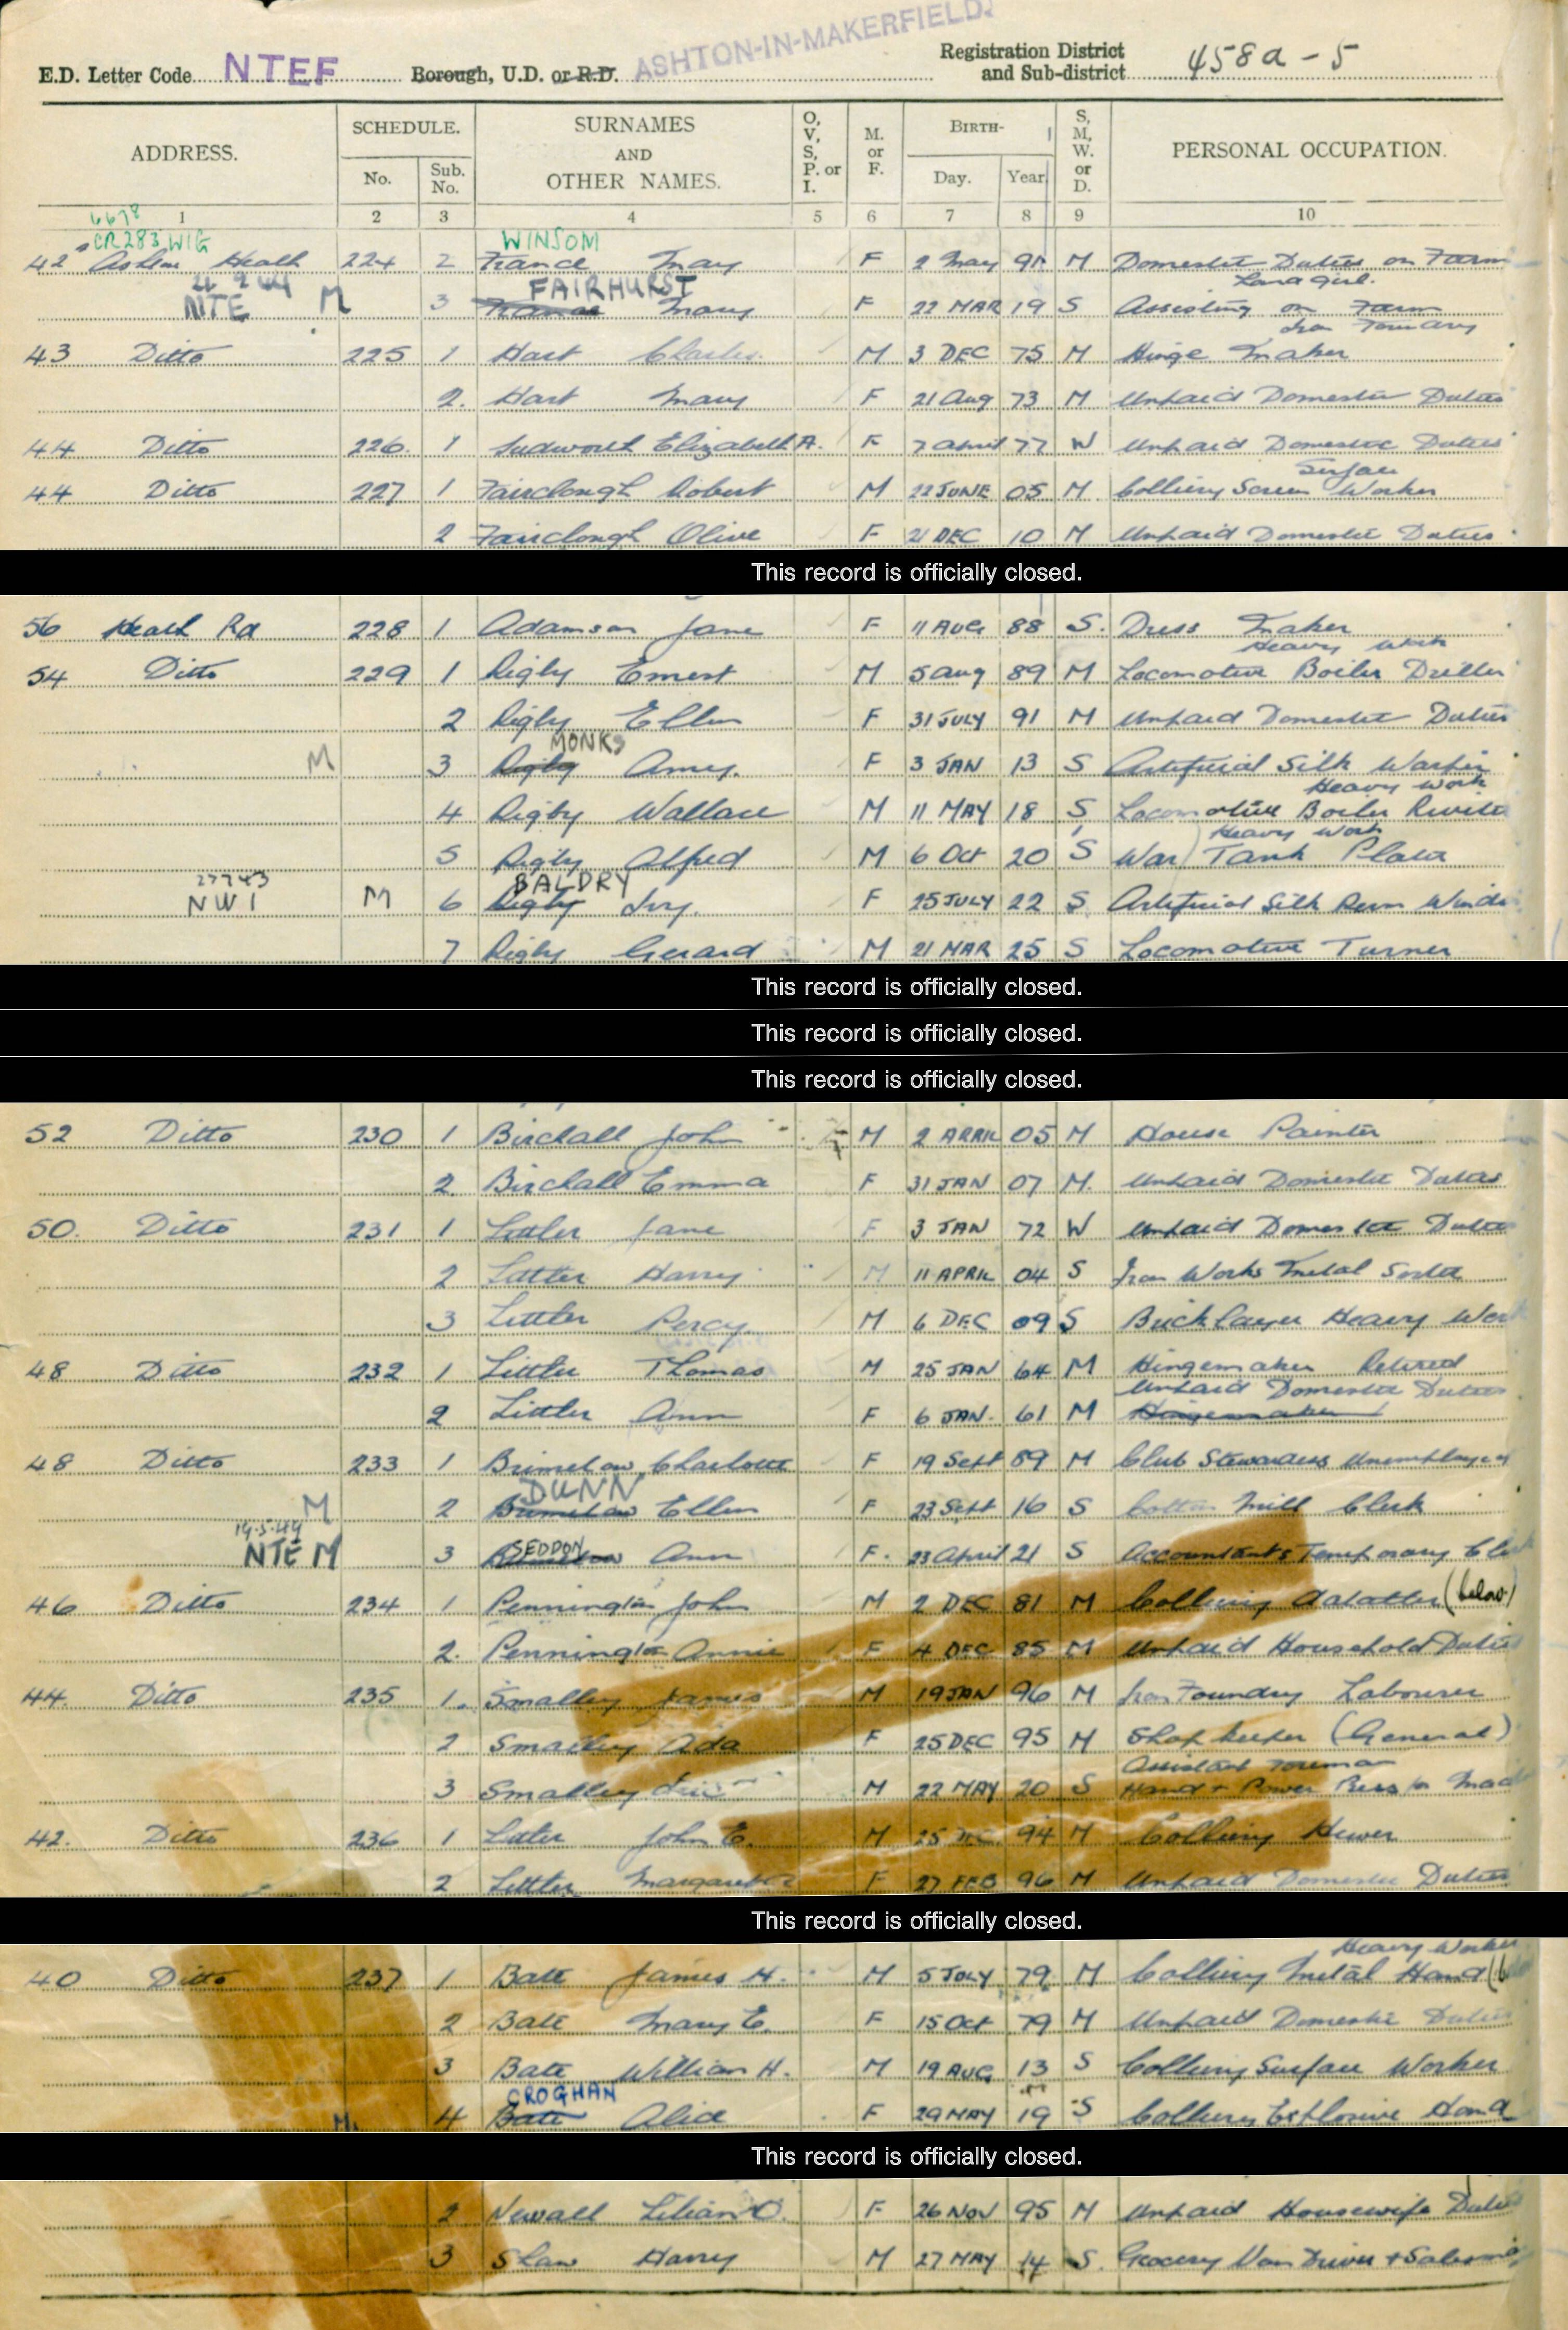 ASHTON-IN-MAKERFIELD.
E.D. Letter Code NTEF Borough, U.D. or R.D. Registration District and Sub-district 458a - 5
ADDRESS. SCHEDULE. No. Sub. No. SURNAMES AND OTHER NAMES. O, V, S, P. or I. M. or F. BIRTH- Day. Year S, M, W. or D. PERSONAL OCCUPATION.
1 2 3 4 5 6 7 8 9 10
6678
CR283 WIG WINSOM
42 Ashton Heath 224 2 France May F 2 May 91 M Domestic Duties on Farm
FAIRHURST Land Girl.
NTE M 3 Mary F 22 MAR 19 S Assisting on Farm
Iron Foundry
43 Ditto 225 1 Hart Charles M 3 DEC 75 M Hinge Maker
2. Hart Mary F 21 Aug 73 M Unpaid Domestic Duties
44 Ditto 226. 1 Sudworth Elizabeth A. F 7 April 77 W Unpaid Domestic Duties
Surface
44 Ditto 227 1 Fairclough Robert M 22 JUNE 05 M. Colliery Screen Worker
2 Fairclough Olive F 21 DEC 10 M Unpaid Domestic Duties
This record is officially closed.
56 Heath Rd 228 1 Adamson Jane F 11 AUG 88 S. Dress Maker
Heavy Work
54 Ditto 229 1 Rigby Ernest M 5 Aug 89 M Locomotive Boiler Driller
2 Rigby Ellen F 31 JULY 91 M Unpaid Domestic Duties
MONKS
M 3 Rigby Amy. F 3 JAN 13 S Artificial Silk Warper
Heavy Work
4 Rigby Wallace M 11 MAY 18 S Locomotive Boiler Riveter
Heavy Work
5 Rigby Alfred M 6 Oct 20 S War Tank Plater
27743 BALDRY
NW1 M 6 Rigby Ivy. F 25 JULY 22 S Artificial Silk Winder
7 Rigby Gerard M 21 MAR 25 S Locomotive Turner
This record is officially closed.
This record is officially closed.
This record is officially closed.
52 Ditto 230 1 Birchall John M 2 APRIL 05 M House Painter
2. Birchall Emma F 31 JAN 07 M. Unpaid Domestic Duties
50. Ditto 231 1 Littler Jane F 3 JAN 72 W Unpaid Domestic Duties
2 Littler Harry M 11 APRIL 04 S Iron Works Metal Sorter
3 Littler Percy M 6 DEC 09 S Bricklayer Heavy Work
48 Ditto 232 1 Littler Thomas M 25 JAN 64 M Hingemaker Retired
Unpaid Domestic Duties
2 Littler Ann F 6 JAN. 61 M Hingemaker
48 Ditto 233 1 Brimelow Charlotte F 19 Sept 89 M Club Stewardess Unemployed
DUNN
M 2 Brimelow Ellen F 23 Sept 16 S Cotton Mill Clerk
19.5.44 SEDDON
NTE M 3 Brimelow Ann F. 23 April 21 S Accountants Temporary Clerk
46 Ditto 234 1 Pennington John M 2 DEC 81 M Colliery Dataller (below)
2. Pennington Annie F 4 DEC 85 M Unpaid Household Duties
44. Ditto 235 1. Smalley James M 19 JAN 96 M Iron Foundry Labourer
2 Smalley Ada F 25 DEC 95 M Shop keeper (General)
Assistant Foreman
3 Smalley Eric M 22 MAY 20 S Hand + Power Press
42. Ditto 236 1 Littler John E. M 25 DEC. 94 M Colliery Hewer
2 Littler Margaret F 27 FEB 96 M Unpaid Domestic Duties
This record is officially closed.
Heavy Worker
40 Ditto 237 1 Bate James H. M 5 JULY 79 M Colliery Metal Hand
2 Bate Mary E. F 15 Oct 79 M Unpaid Domestic Duties
3 Bate William H. M 19 AUG 13 S Colliery Surface Worker
CROGHAN
M. 4 Bate Alice F 29 MAY 19 S Colliery Explosive Hand
This record is officially closed.
2 Newall Lilian O. F 26 NOV 95 M Unpaid Housewife Duties
3 Shaw Harry M 27 MAY 14 S. Grocery Van Driver + Salesman